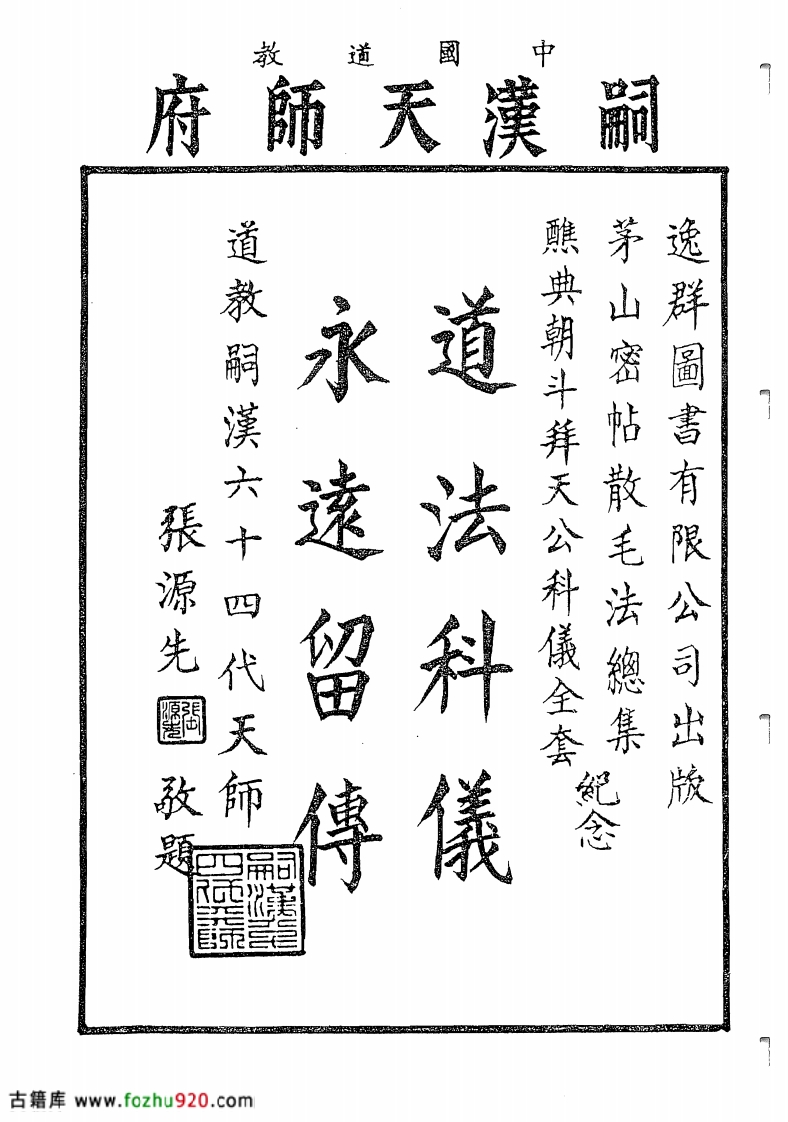 中國道教
嗣漢天師府
逸群圖書有限公司出版
茅山密帖散毛法總集
醮典朝斗拜天公科儀全套
紀念
道法科儀
永遠留傳
道教嗣漢六十四代天師
張源先
張源先
敬題
嗣漢六十四代天師
古籍库 www.fozhu920.com